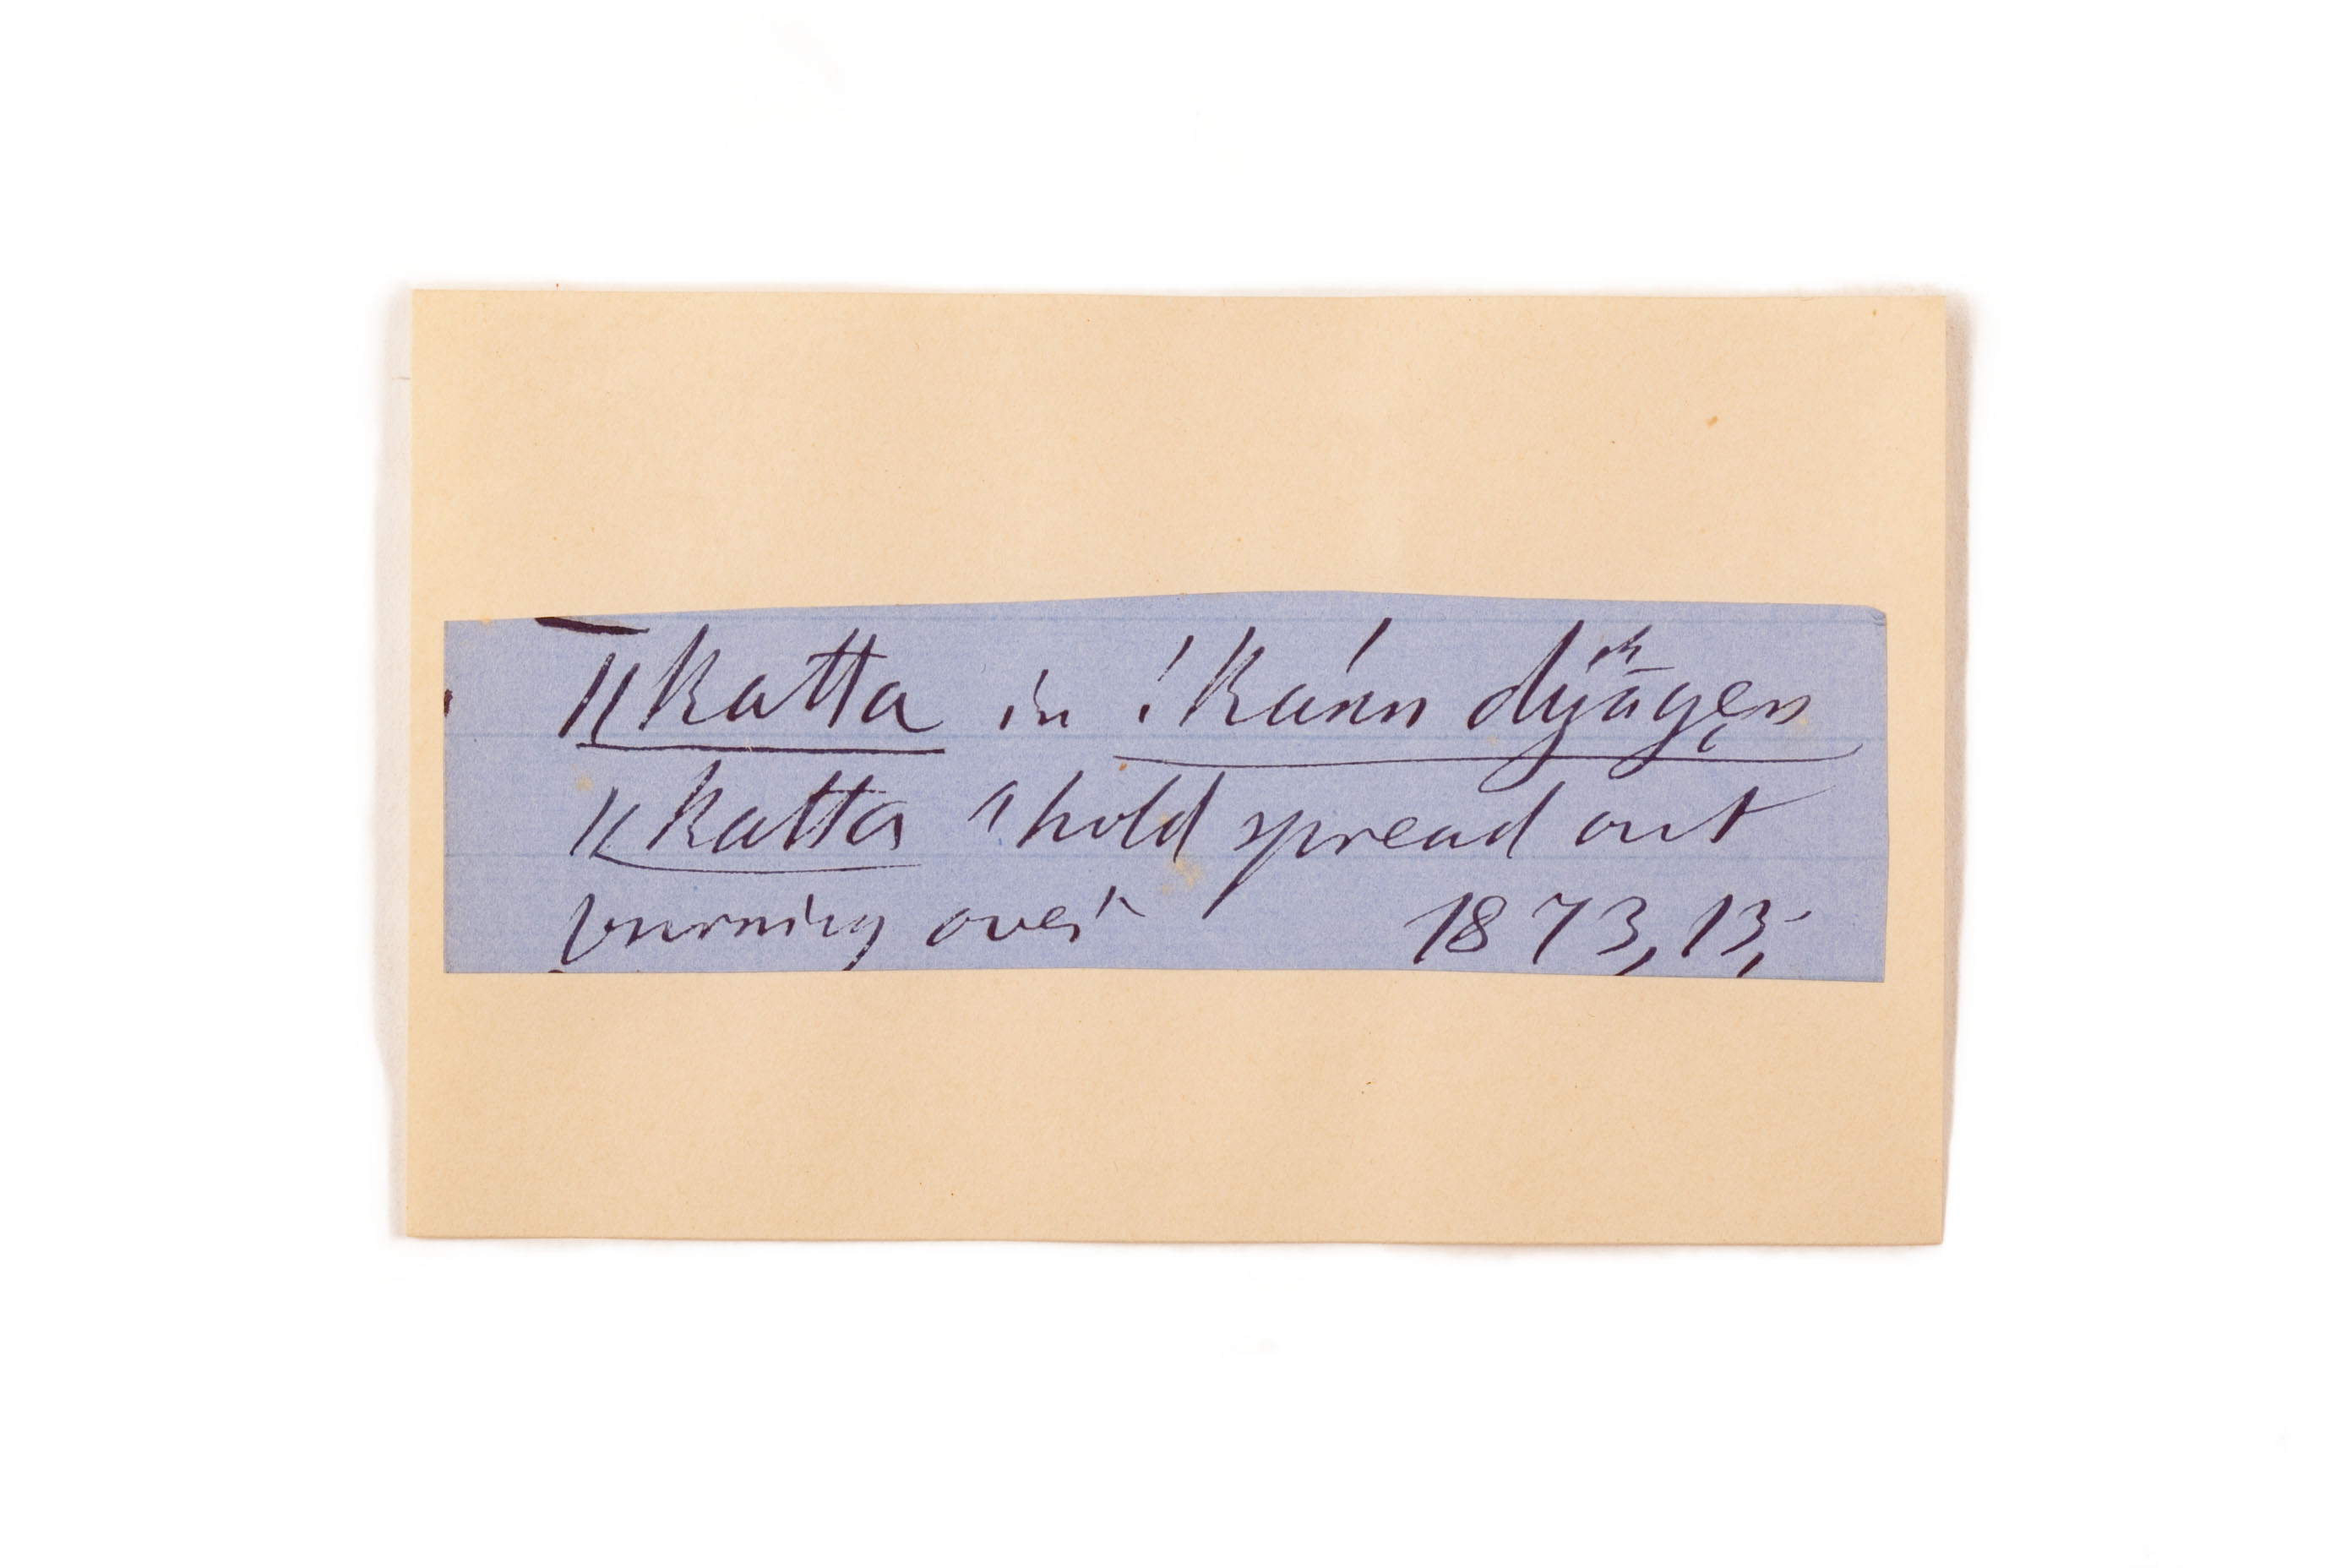 ǁkatta in !kánn dyāgęn
ǁkatta "hold spread out
burning over" 1873, 13,